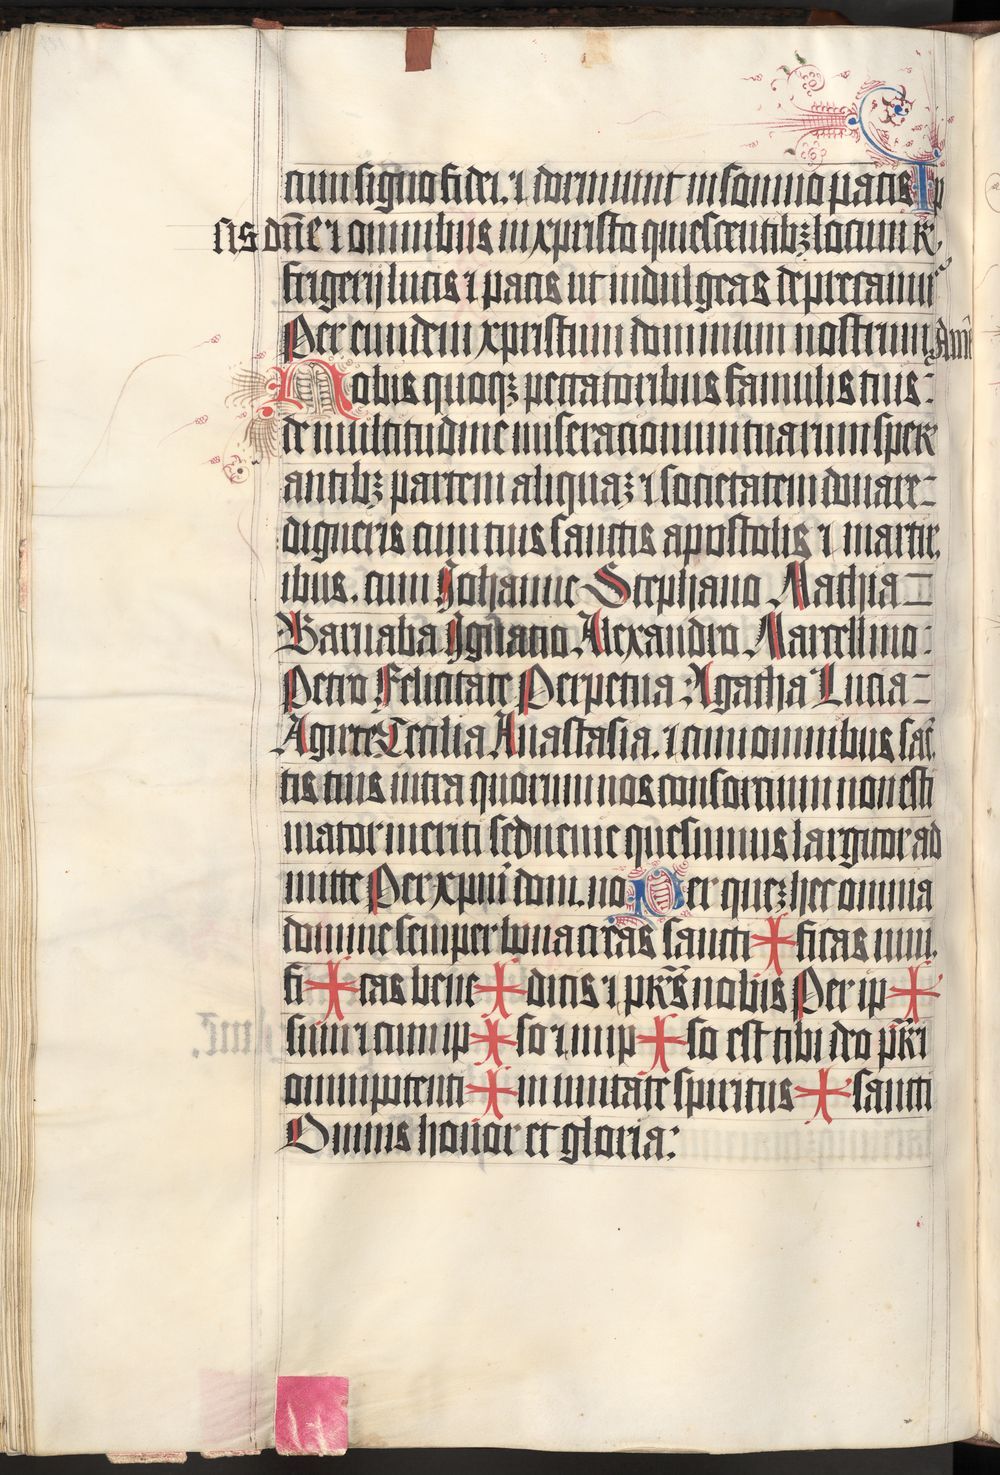 cum signo fidei. ⁊ dormiunt in sompno pacis Ip
sis dn̄e ⁊ omnibus in xpristo quiescentibꝫ locum r̄
frigerij lucis ⁊ pacis ut indulgeas deprecamur
Per eundem xpristum dominum nostrum Am̄
Nobis quoqꝫ peccatoribus famulis tuis:
de multitudine miseracionum tuarum sper
antibꝫ partem aliquaꝫ ⁊ societatem donare
digneris cum tuis sanctis apostolis ⁊ martir
ibus. cum Johanne Stephano Mathia
Barnaba Ignatio Alexandro Marcellino:
Petro Felicitate Perpetua Agatha Lucia
Agnete Cecilia Anastasia. ⁊ cum omnibus sāc
tis tuis intra quorum nos consorcium non esti
mator meriti sed uenie quesumus largitor ad
mitte Per xpm̄ dom. no Per queꝫ hec omnia
domine semper bona creas sancti ✝ ficas uiui
fi ✝ cas bene ✝ dicis ⁊ prēs̄ nobis Per ip ✝
sum ⁊ cum ip ✝ so ⁊ in ip ✝ so est tibi deo pr̄i
omnipotenti ✝ in unitate spiritus ✝ sancti
Omnis honor et gloria: